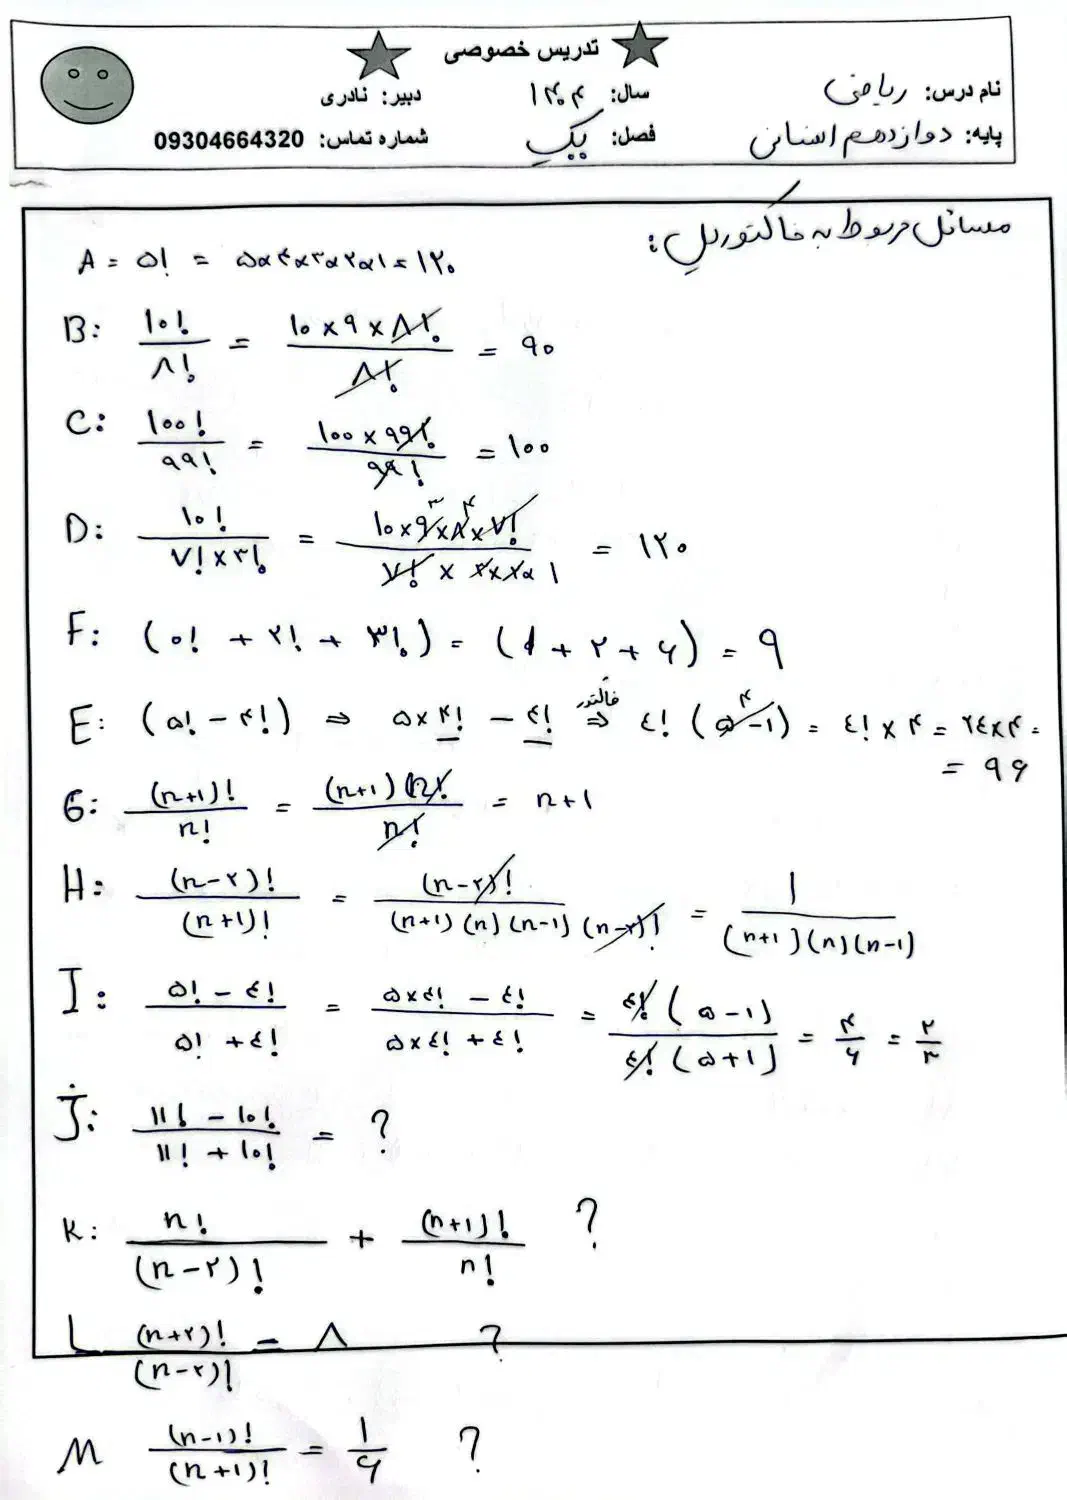 تدریس خصوصی
نام درس: ریاضی سال: ۱۴۰۴ دبیر: نادری
پایه: دوازدهم انسانی فصل: یک شماره تماس: 09304664320
مسائل مربوط به فاکتوریل:
A = ۵! = ۵×۴×۳×۲×۱ = ۱۲۰
B: ۱۰! / ۸! = ۱۰ × ۹ × ۸! / ۸! = ۹۰
C: ۱۰۰! / ۹۹! = ۱۰۰ × ۹۹! / ۹۹! = ۱۰۰
D: ۱۰! / ۷! × ۳! = ۱۰ × ۹ × ۸ × ۷! / ۷! × ۳ × ۲ × ۱ = ۱۲۰
F: (۰! + ۲! + ۳!) = (۱ + ۲ + ۶) = ۹
E: (۵! − ۴!) ⇒ ۵ × ۴! − ٤! ⇒ فاکتور ٤! (۵ − ۱) = ٤! × ۴ = ۲٤ × ۴ =
= ۹۶
G: (n+۱)! / n! = (n+۱)(n)! / n! = n+۱
H: (n−۲)! / (n+۱)! = (n−۲)! / (n+۱)(n)(n−۱)(n−۲)! = ۱ / (n+۱)(n)(n−۱)
I: ۵! − ٤! / ۵! + ٤! = ۵×٤! − ٤! / ۵×٤! + ٤! = ٤! (۵ − ۱) / ٤! (۵ + ۱) = ۴ / ۶ = ۲ / ۳
J: ۱۱! − ۱۰! / ۱۱! + ۱۰! = ?
K: n! / (n−۲)! + (n+۱)! / n! ?
L (n+۲)! / (n−۲)! = ۸ ?
M (n−۱)! / (n+۱)! = ۱ / ۶ ?